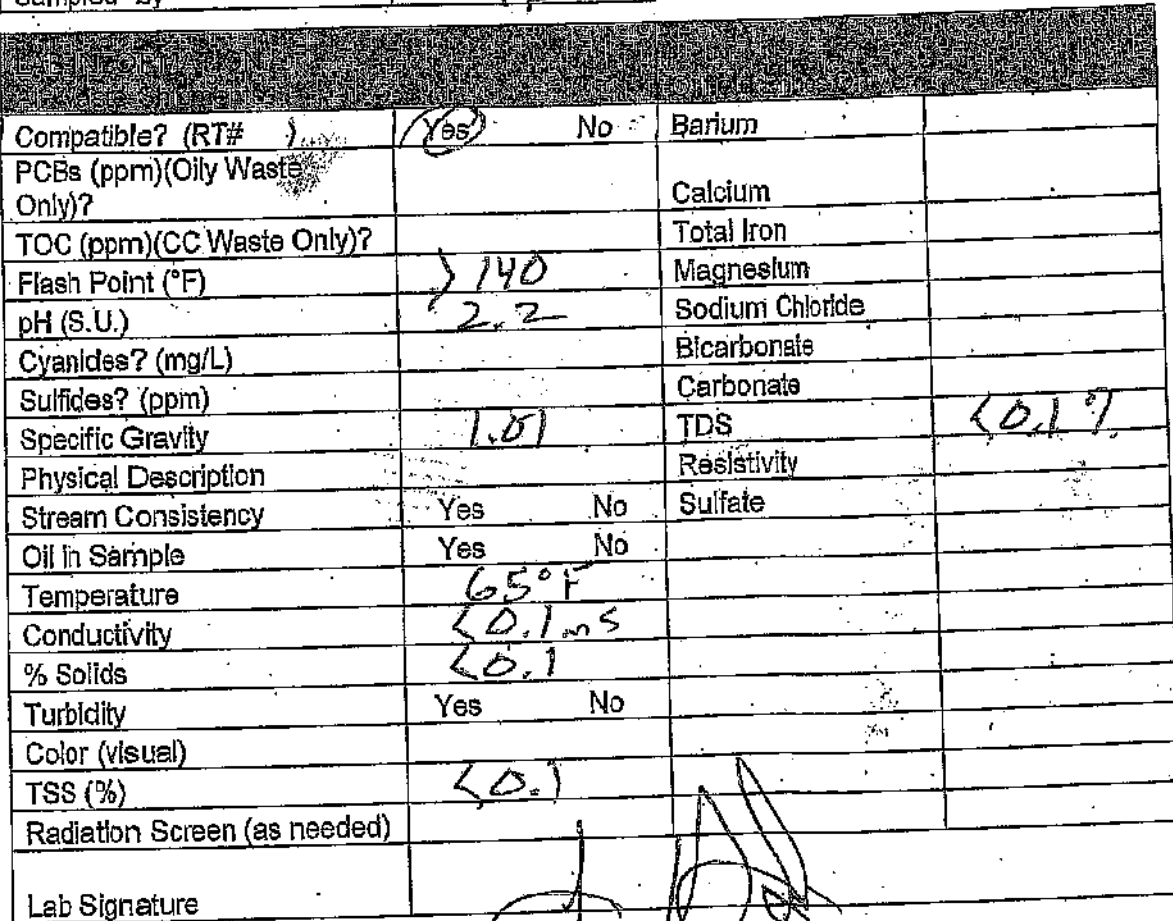 Sampled by
LAB INFORMATION
Compatible? (RT# ) Yes No Barium
PCBs (ppm)(Oily Waste
Only)? Calcium
TOC (ppm)(CC Waste Only)? Total Iron
Flash Point (°F) >140 Magnesium
pH (S.U.) 2.2 Sodium Chloride
Cyanides? (mg/L) Bicarbonate
Sulfides? (ppm) Carbonate
Specific Gravity 1.01 TDS <0.1%
Physical Description Resistivity
Stream Consistency Yes No Sulfate
Oil in Sample Yes No
Temperature 65°F
Conductivity <0.1 ms
% Solids <0.1
Turbidity Yes No
Color (visual)
TSS (%) <0.1
Radiation Screen (as needed)
Lab Signature